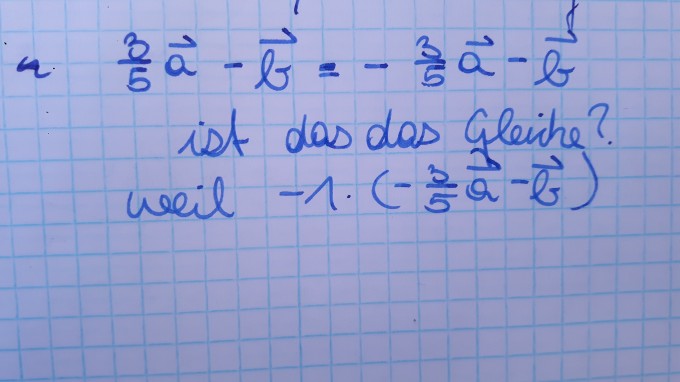 3/5 a⃗ - b⃗ = - 3/5 a⃗ - b⃗
ist das das Gleiche?
weil -1 · (- 3/5 a⃗ - b⃗)